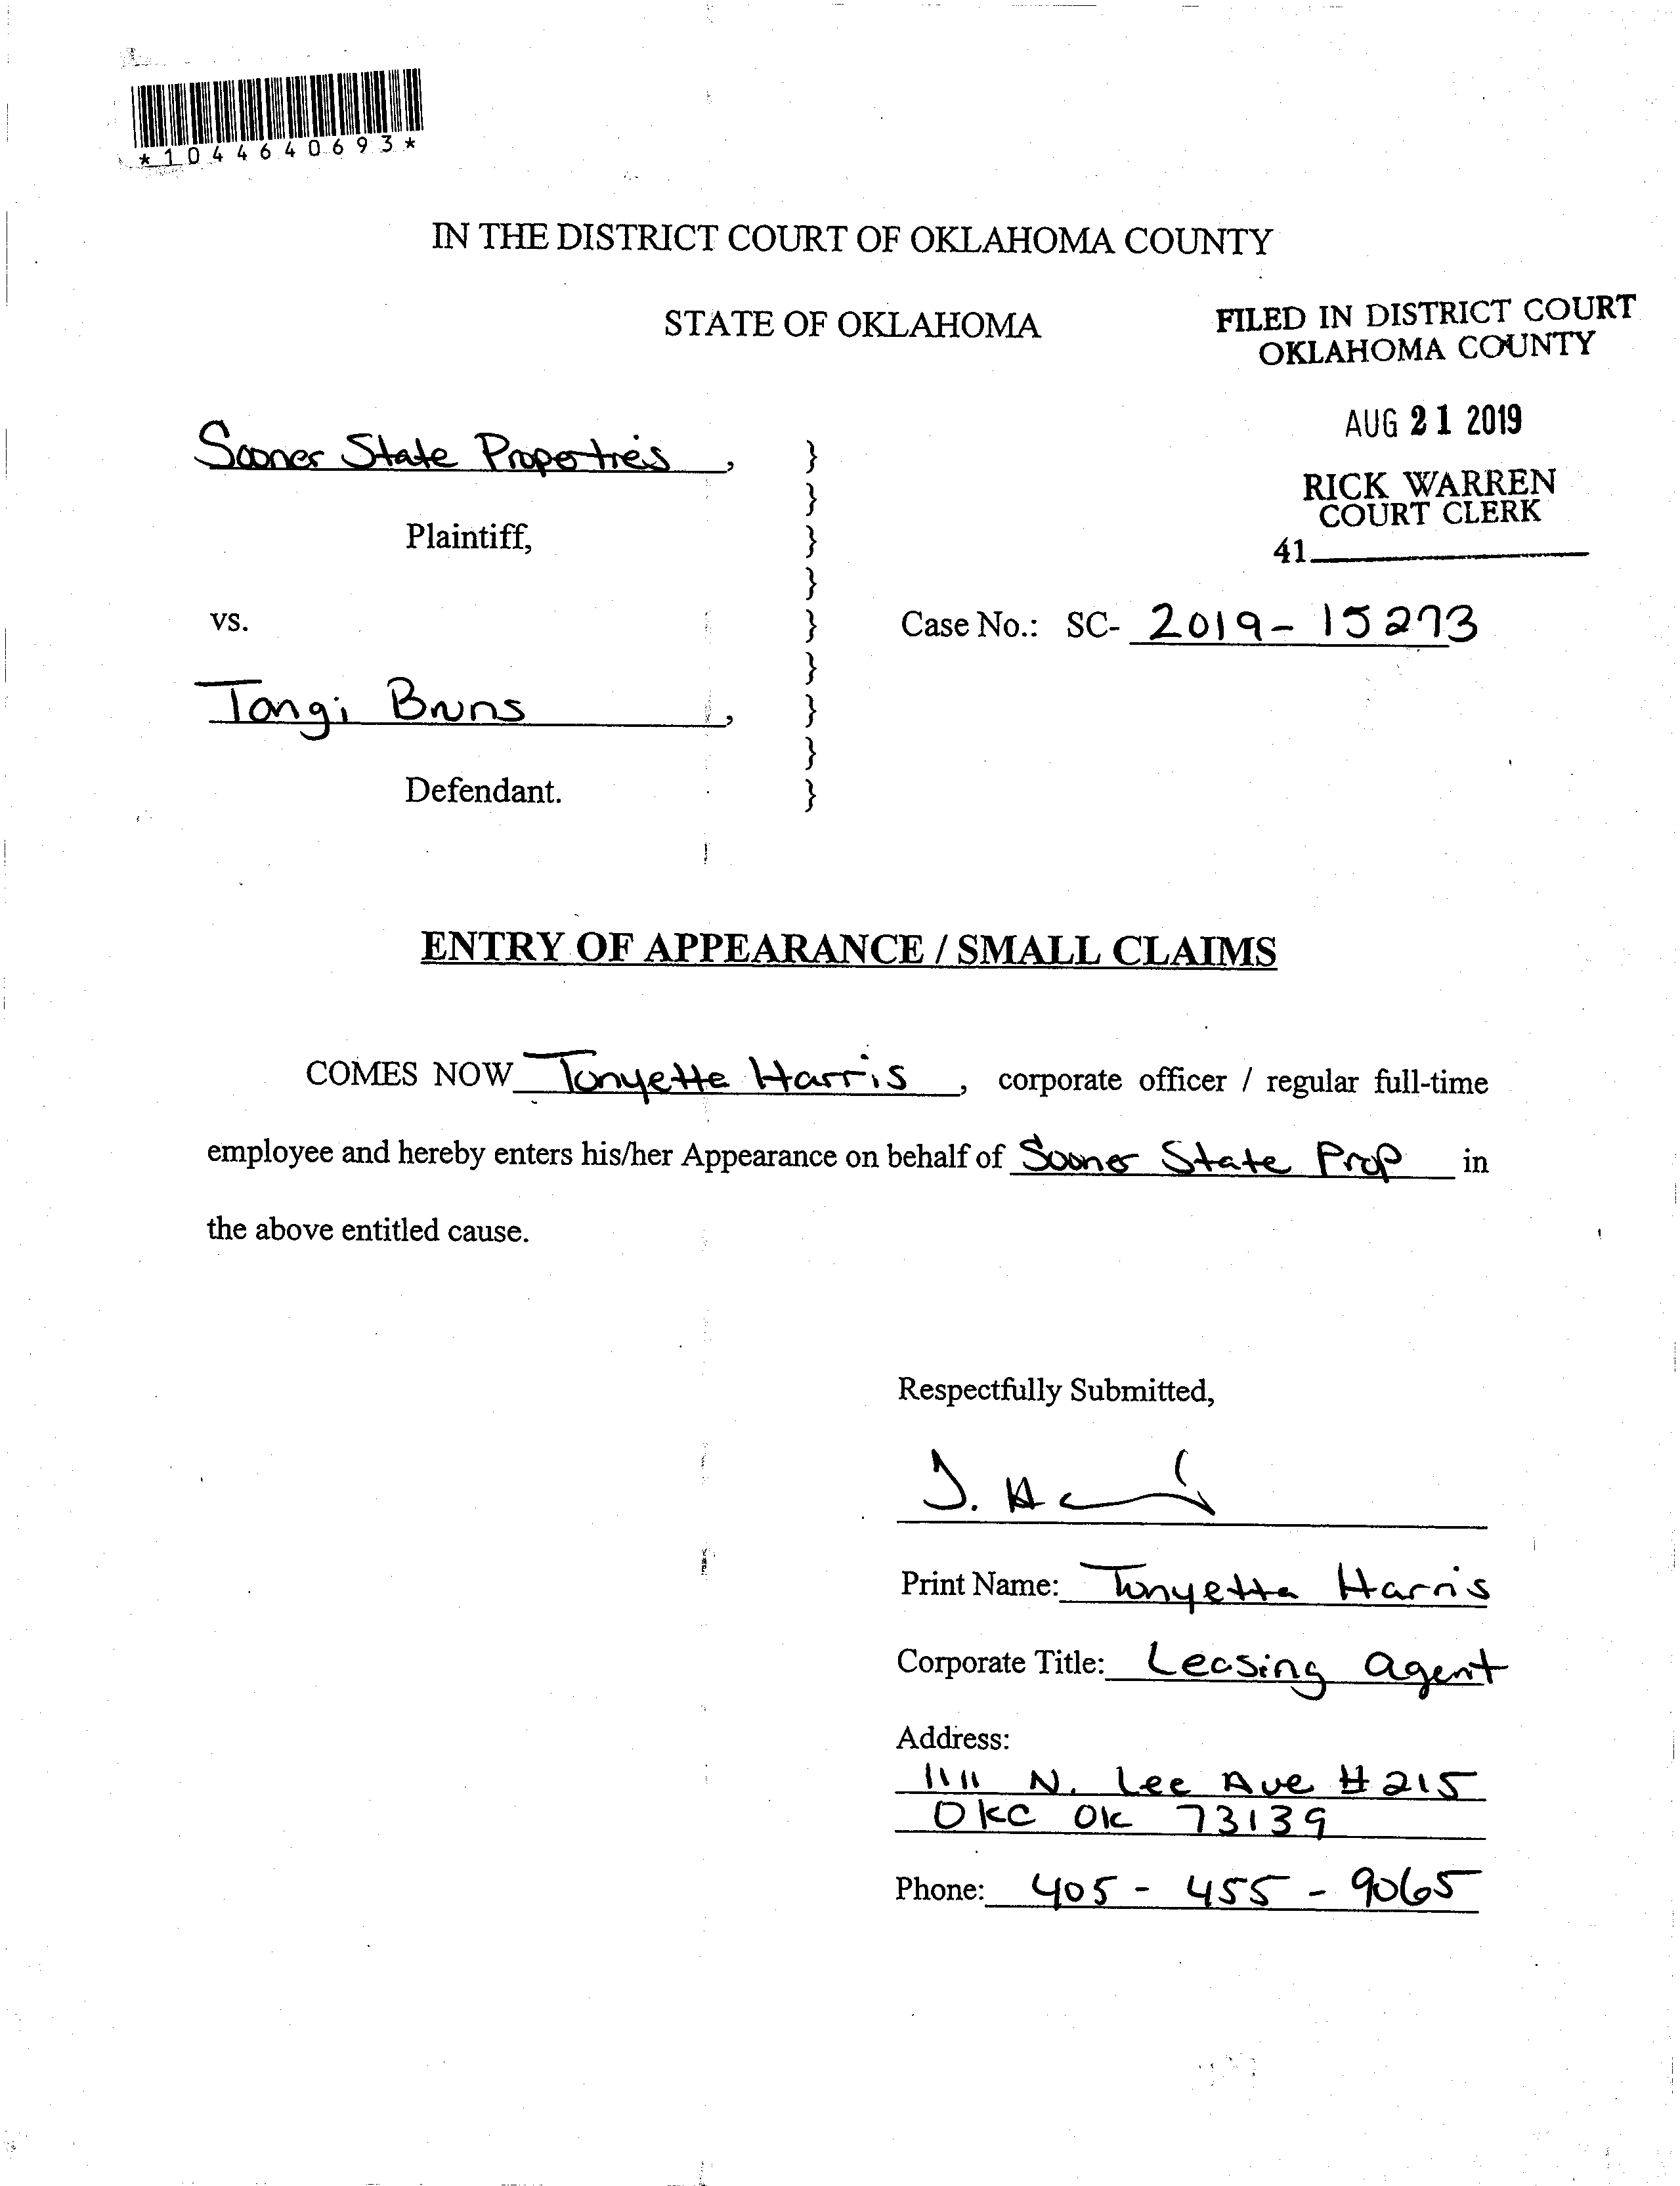 *1044640693*
IN THE DISTRICT COURT OF OKLAHOMA COUNTY
STATE OF OKLAHOMA
FILED IN DISTRICT COURT
OKLAHOMA COUNTY
AUG 21 2019
RICK WARREN
COURT CLERK
41
Sooner State Properties,
Plaintiff,
vs.
Case No.: SC- 2019-15273
Tangi Bruns,
Defendant.
ENTRY OF APPEARANCE / SMALL CLAIMS
COMES NOW Tonyette Harris, corporate officer / regular full-time
employee and hereby enters his/her Appearance on behalf of Sooner State Prop in
the above entitled cause.
Respectfully Submitted,
Print Name: Tonyetta Harris
Corporate Title: Leasing agent
Address:
1111 N. Lee Ave #215
OKC OK 73139
Phone: 405-455-9065